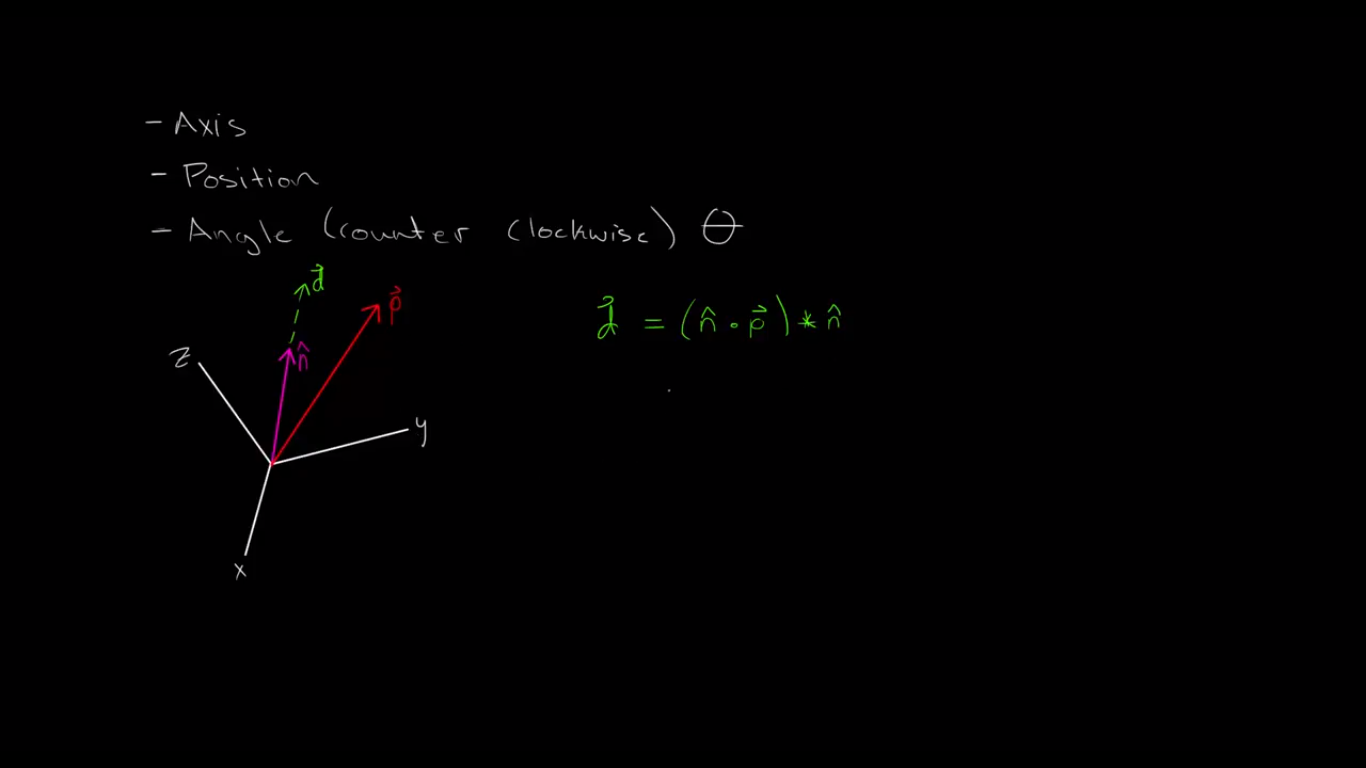 - Axis
- Position
- Angle (counter clockwise) θ
d⃗ p⃗
d⃗ = (n̂ • p⃗) * n̂
z n̂
y
x